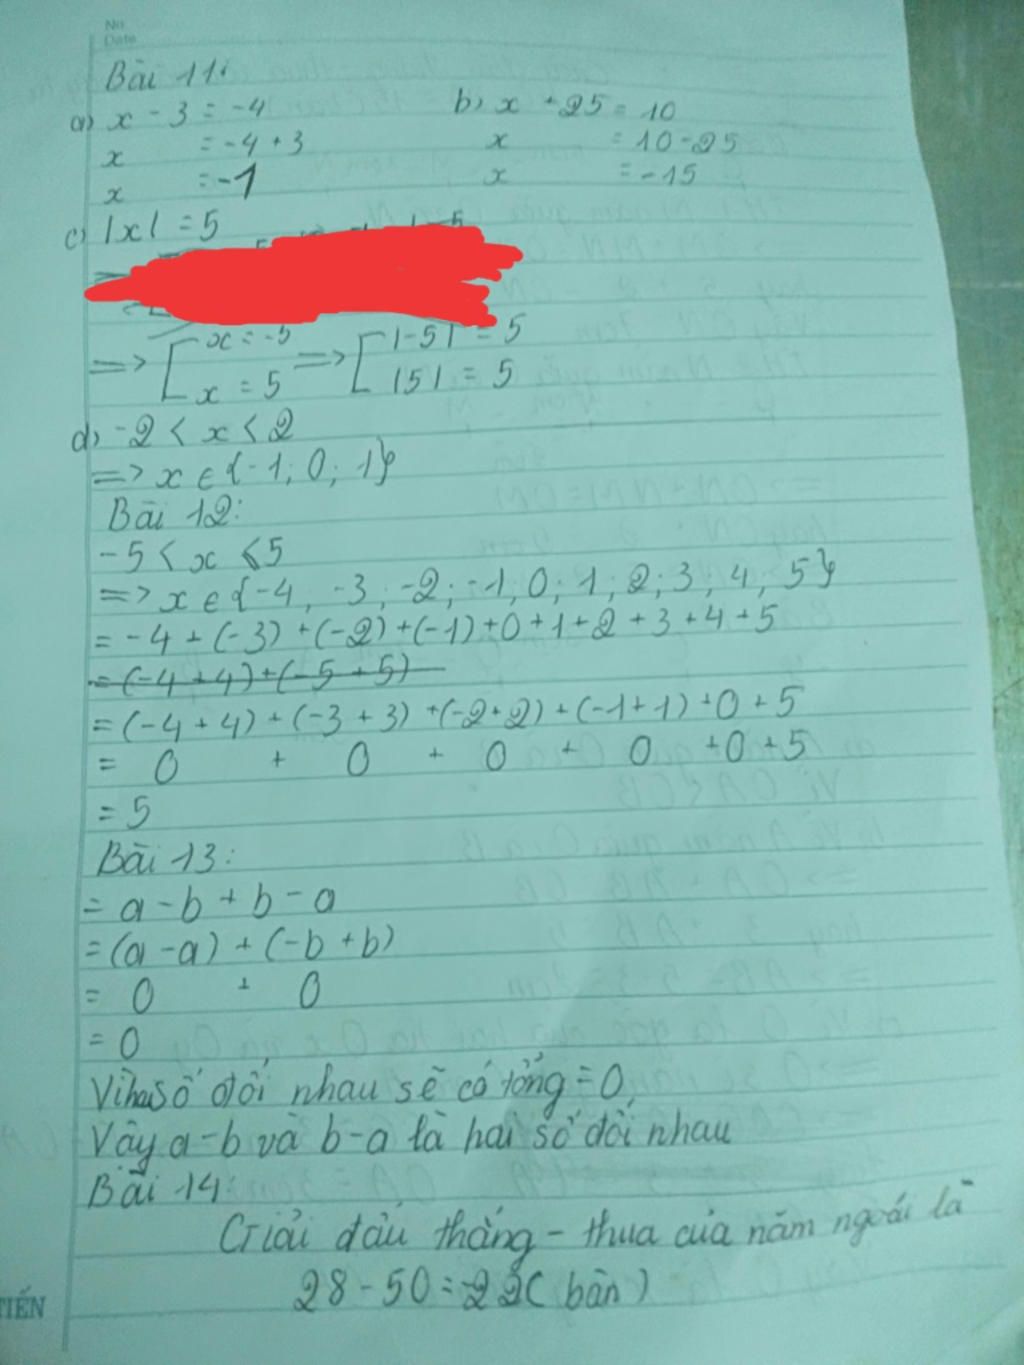 No.
Date
Bài 11:
a) x - 3 = -4
x = -4 + 3
x = -1
b) x + 25 = 10
x = 10 - 25
x = -15
c) |x| = 5
=> [ x = -5 => [ |-5| = 5
x = 5 |5| = 5
d) -2 < x < 2
=> x ∈ {-1; 0; 1}
Bài 12:
-5 < x ≤ 5
=> x ∈ {-4; -3; -2; -1; 0; 1; 2; 3; 4; 5}
= -4 + (-3) + (-2) + (-1) + 0 + 1 + 2 + 3 + 4 + 5
= (-4 + 4) + (-5 + 5)
= (-4 + 4) + (-3 + 3) + (-2 + 2) + (-1 + 1) + 0 + 5
= 0 + 0 + 0 + 0 + 0 + 5
= 5
Bài 13:
= a - b + b - a
= (a - a) + (-b + b)
= 0 + 0
= 0
Vì hai số đối nhau sẽ có tổng = 0
Vậy a - b và b - a là hai số đối nhau
Bài 14:
Giải đấu thắng - thua của năm ngoái là
28 - 50 = -22 (bàn)
TIẾN